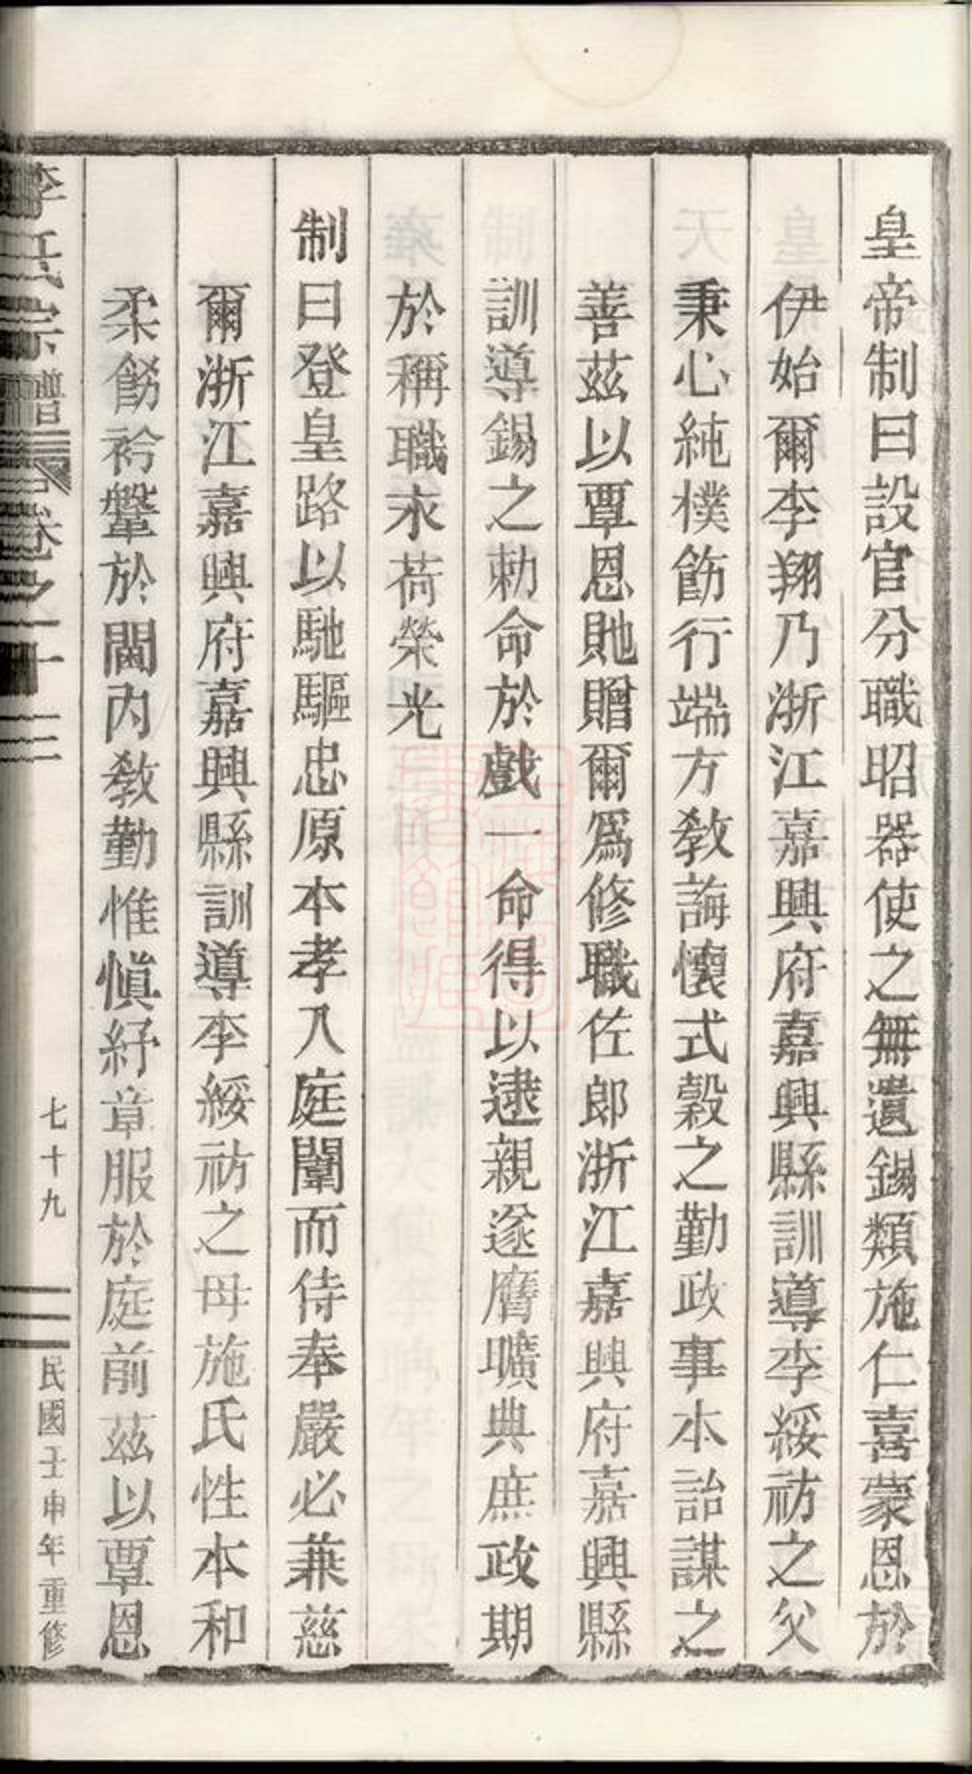 皇帝制曰設官分職昭器使之無遺錫類施仁喜蒙恩於
伊始爾李翔乃浙江嘉興府嘉興縣訓導李綏祊之父
秉心純樸飭行端方敎誨懷式穀之勤政事本詒謀之
善茲以覃恩貤贈爾爲修職佐郎浙江嘉興府嘉興縣
訓導錫之勅命於戲一命得以逮親遂膺曠典庶政期
於稱職永荷榮光
制曰登皇路以馳驅忠原本孝入庭闈而侍奉嚴必兼慈
爾浙江嘉興府嘉興縣訓導李綏祊之母施氏性本和
柔飭衿鞶於閫内敎勤惟愼紓章服於庭前茲以覃恩
李氏宗譜 卷之二十三 七十九 民國壬申年重修